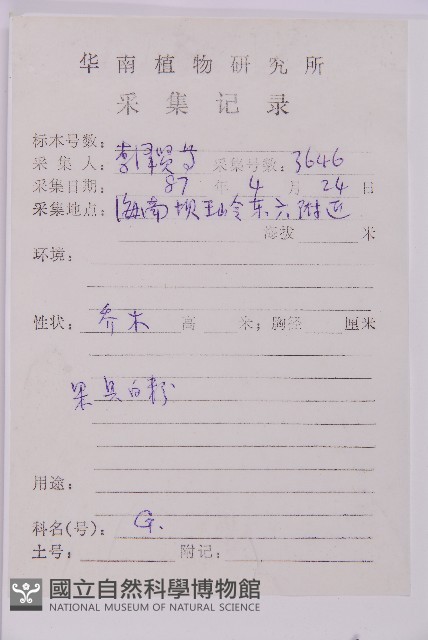 华南植物研究所
采集记录
标本号数：
采集人：李泽贤等 采集号数：3646
采集日期：87年4月24日
采集地点：海南坝王岭东六附近
海拔 米
环境：
性状：乔木 高 米；胸径 厘米
果具白粉
用途：
科名(号)：G.
土号： 附记：
國立自然科學博物館
NATIONAL MUSEUM OF NATURAL SCIENCE